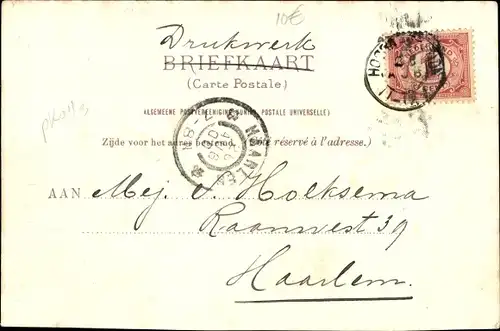 10€
Drukwerk
BRIEFKAART
(Carte Postale)
ALGEMEENE POSTVEREENIGING (UNION POSTALE UNIVERSELLE)
Zijde voor het adres bestemd. (Côté réservé à l'adresse.)
HAARLEM
AAN Mej. v. Hoeksema
Raamvest 39
Haarlem.